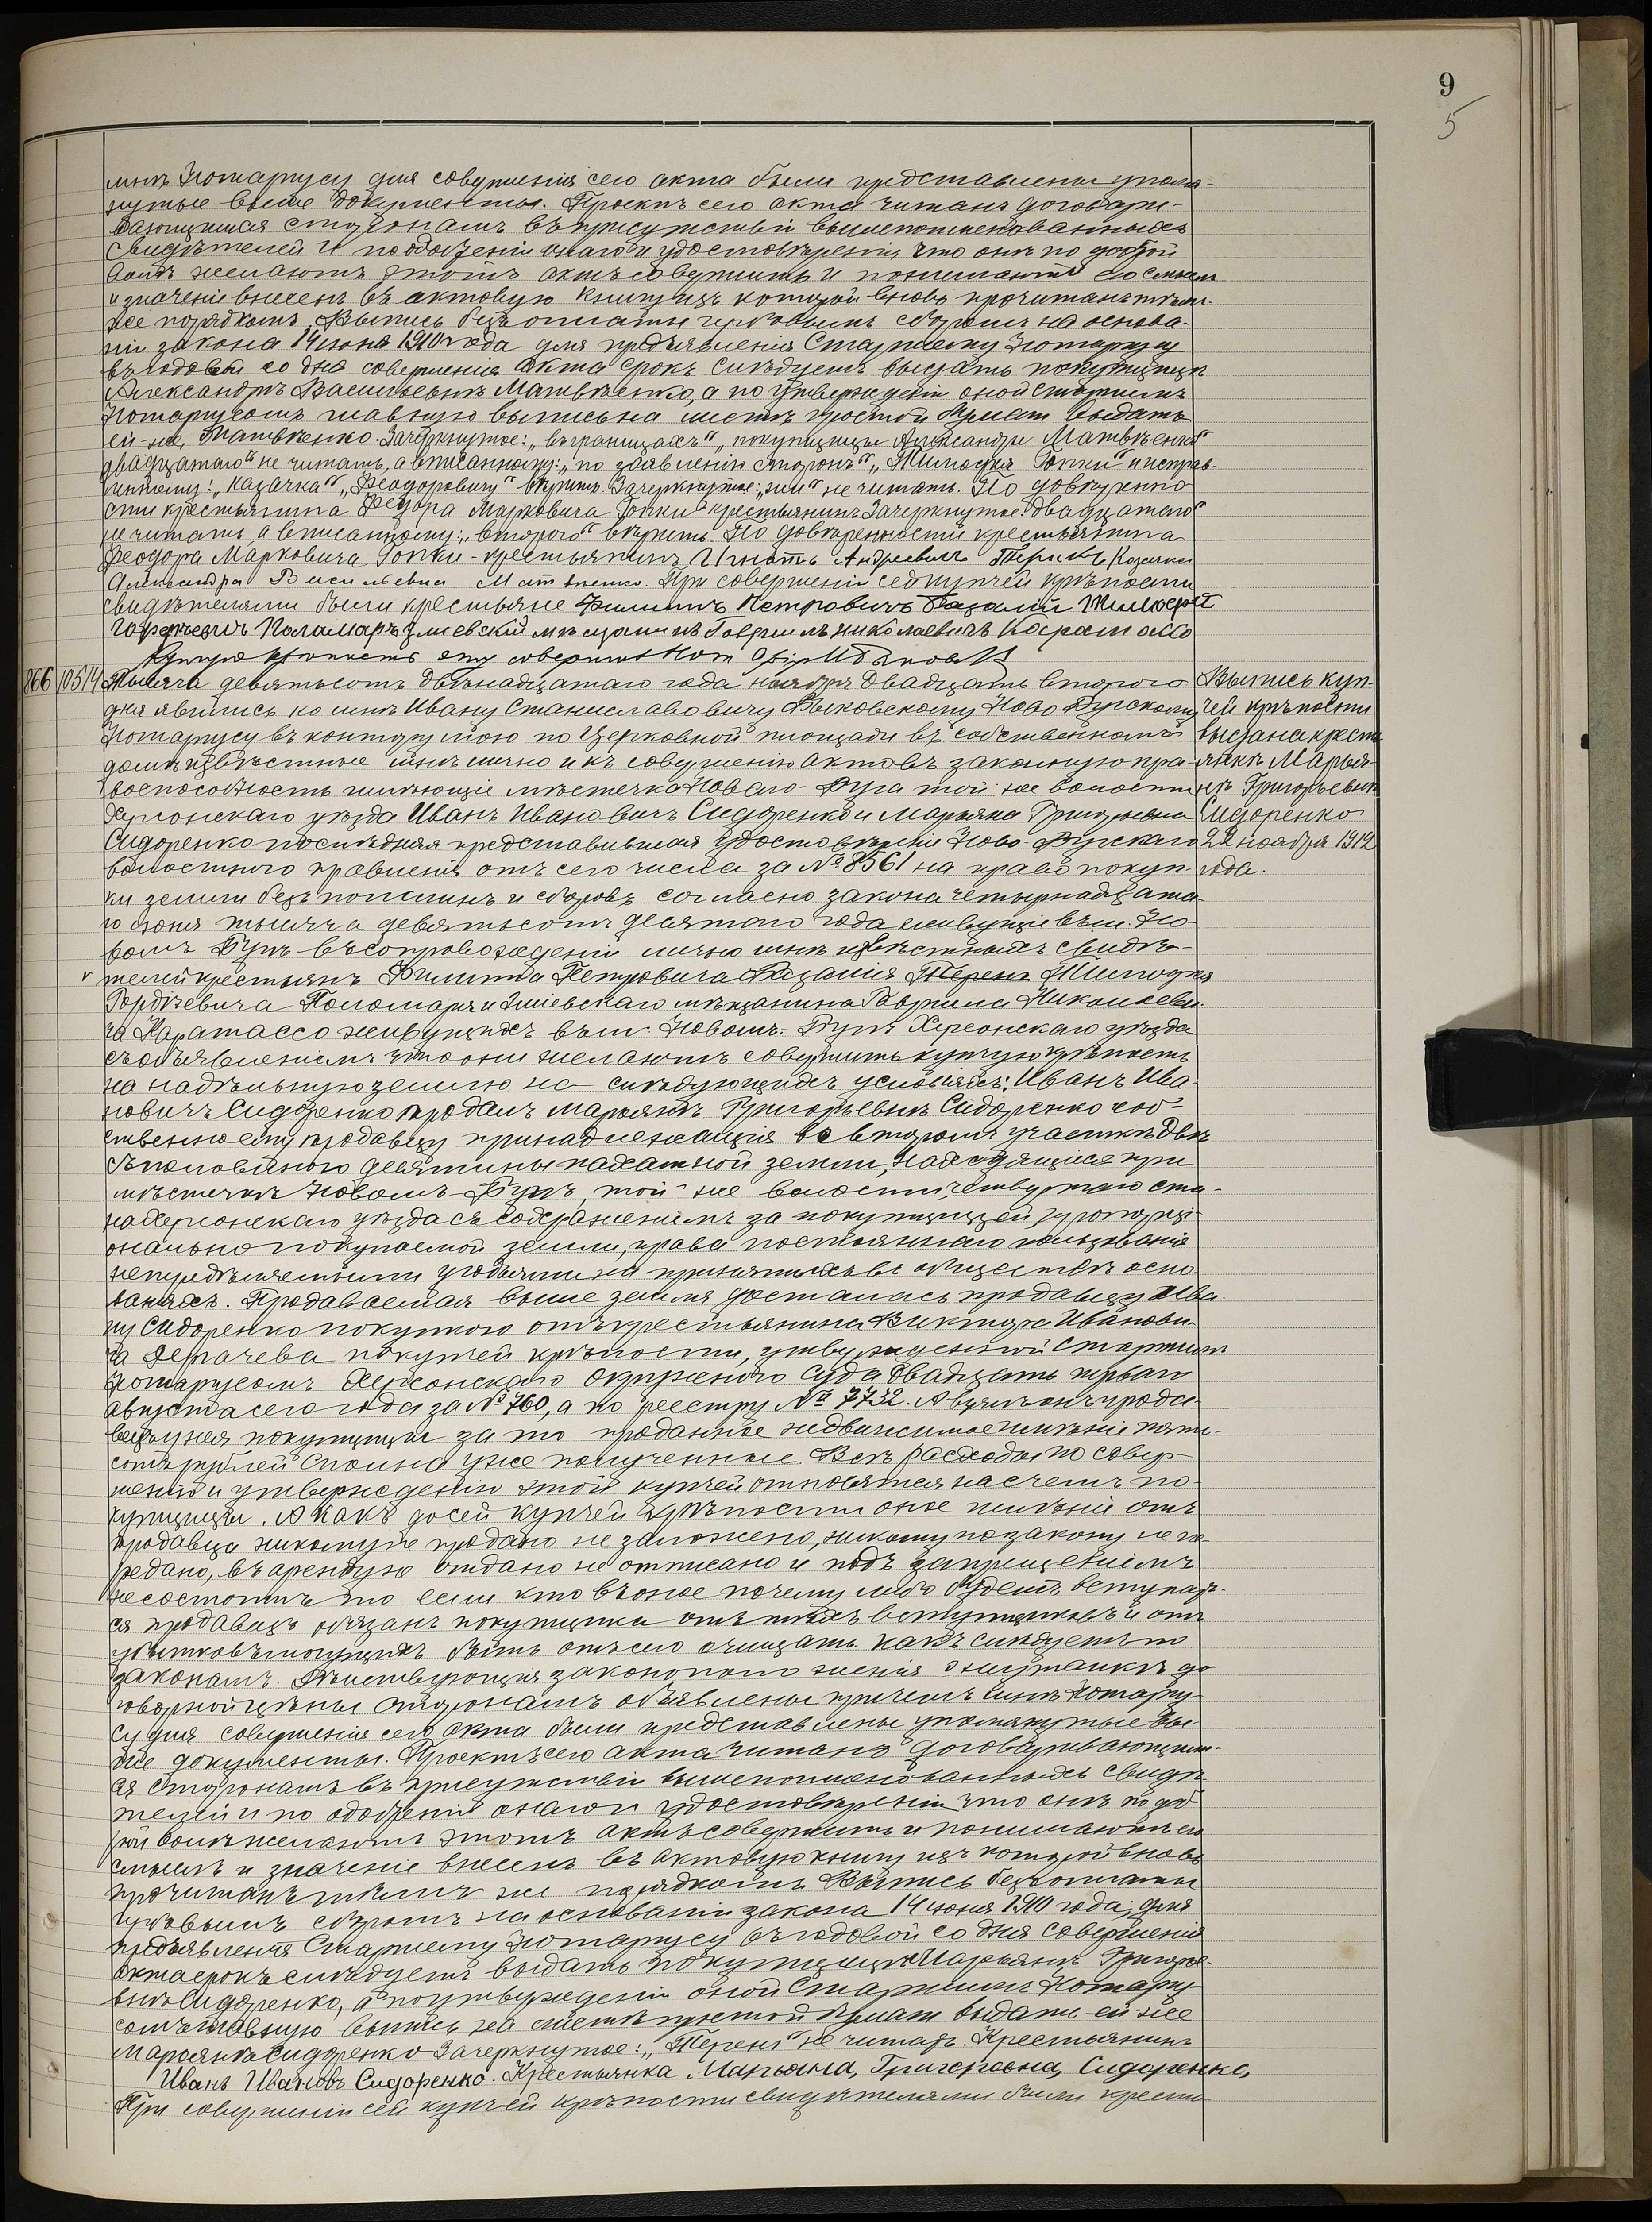 9
5
мнѣ Нотаріусу для совершенія сего акта были представлены упомя-
нутые выше документы. Проектъ сего акта читанъ договари-
вающимся сторонамъ въ присутствіи вышепоименованныхъ
свидѣтелей и по одобреніи онаго и удостовѣреніи, что онѣ по доброй
волѣ желаютъ этотъ актъ совершить и понимаютъ его смыслъ
и значеніе внесенъ въ актовую книгу изъ которой вновь прочитанъ тѣмъ-
же порядкомъ. Выпись безъ оплаты гербовымъ сборомъ на основа-
ніи закона 14 іюня 1910 года для предъявленія Старшему Нотаріусу
въ годовой со дня совершенія акта срокъ слѣдуетъ выдать покупщицѣ
Александрѣ Васильевнѣ Матвѣенко, а по утвержденіи оной Старшимъ
Нотаріусомъ главную выпись на листѣ простой бумаги выдать
ей-же, Матвѣенко. Зачеркнутое: „въ границахъ“ „покупщицы Александры Матвѣенко“
„двадцатаго“ не читать, а вписанному: „по заявленію сторонъ“ „Тимофея Гопки“ и исправ-
ленному: „казачка“ „Феодоровичу“ вѣрить. Зачеркнутое: не читать. По довѣренно-
сти крестьянина Федора Марковича Гопки крестьянинъ Зачеркнутое: „двадцатаго“
не читать, а вписанному: „второго“ вѣрить. По довѣренности крестьянина
Феодора Марковича Гопки - крестьянинъ Игнатъ Андреевичъ Казачка
Александра Васильевна Матвѣенко. При совершеніи сей купчей крѣпости
свидѣтелями были крестьяне Филиппъ Петровичъ Тимофей
Гордѣевичъ Паламаръ Змиевскій мѣщанинъ Гавриилъ Николаевичъ Карамассо
Купчую крѣпость эту совершилъ Нот
866 10514 Тысяча девятьсотъ двѣнадцатаго года ноября двадцать второго
дня явились ко мнѣ Ивану Станиславовичу Выковскому Ново-Бугскому
Нотаріусу въ контору мою по Церковной площади въ собственномъ
домѣ извѣстные мнѣ лично и къ совершенію актовъ законную пра-
воспособность имѣющіе мѣстечка Новаго-Буга той-же волости
Херсонскаго уѣзда Иванъ Ивановичъ Сидоренко и Марьяна Григорьевна
Сидоренко последняя представившая удостовѣреніе Ново-Бугскаго
волостного правленія отъ сего числа за № 8561 на право покуп-
ки земли безъ пошлинъ и сборовъ согласно закона четырнадцата-
го іюня тысяча девятьсотъ десятаго года живущіе въ м. Но-
вомъ Бугѣ въ сопровожденіи лично мнѣ извѣстныхъ свидѣ-
телей крестьянъ Филиппа Петровича Терень Тимофея
Гордѣевича Поломаря и Змиевскаго мѣщанина Гавриила Николаеви-
ча Карамассо живущихъ въ м. Новомъ-Бугѣ Херсонскаго уѣзда
съ объявленіемъ что они желаютъ совершить купчую крѣпость
на надѣльную землю на слѣдующихъ условіяхъ: Иванъ Ива-
новичъ Сидоренко продалъ Марьянѣ Григорьевнѣ Сидоренко соб-
ственно ему продавцу принадлежащія во второмъ участкѣ двѣ
съ половиною десятины пахатной земли, находящіяся при
мѣстечкѣ Новомъ-Бугѣ, той-же волости, четвертаго ста-
на Херсонскаго уѣзда съ сохраненіемъ за покупщицей, пропорці-
онально покупаемой земли, права постояннаго пользованія
непередѣляемыми угодьями на принятыхъ въ обществѣ осно-
ваніяхъ. Продаваемая выше земля досталась продавцу Ива-
ну Сидоренко покупкою отъ крестьянина Виктора Иванови-
ча Дерачева по купчей крѣпости, утвержденной Старшимъ
Нотаріусомъ Херсонскаго Окружнаго Суда двадцать перваго
августа сего года за № 760, а по реестру № 7732. А взялъ онъ прода-
вецъ у нея покупщицы за то проданное недвижимое имѣніе пять-
сотъ рублей сполна уже полученные. Всѣ расходы по совер-
шенію и утвержденію этой купчей относятся на счетъ по-
купщицы. А какъ до сей купчей крѣпости оное имѣніе отъ
продавца никому не продано не заложено, никому по закону не пе-
редано, въ аренду не отдано не отписано и подъ запрещеніемъ
не состоитъ то если кто въ оное почему либо будетъ вступать-
ся продавецъ обязанъ покупщика отъ тѣхъ вступщиковъ и отъ
убытковъ могущихъ быть отъ сего очищать какъ слѣдуетъ по
законамъ. Дѣйствующія законоположенія о неумалкѣ до
говорной цѣны сторонамъ объявлены причемъ мнѣ Нотаріу-
су для совершенія сего акта были представлены упомянутые вы-
ше документы. Проектъ сего акта читанъ договаривающим-
ся сторонамъ въ присутствіи вышепоименованныхъ свидѣ-
телей и по одобреніи онаго и удостовѣреніи что онѣ по доб-
рой волѣ желаютъ этотъ актъ совершить и понимаютъ его
смыслъ и значеніе внесенъ въ актовую книгу изъ которой вновь
прочитанъ тѣмъ же порядкомъ. Выпись безъ оплаты
гербовымъ сборомъ на основаніи закона 14 іюня 1910 года, для
предъявленія Старшему Нотаріусу въ годовой со дня совершенія
акта срокъ слѣдуетъ выдать покупщицѣ Марьянѣ Григорье-
внѣ Сидоренко, а по утвержденіи оной Старшимъ Нотаріу-
сомъ главную выпись на листѣ простой бумаги выдать ей-же
Марьянѣ Сидоренко. Зачеркнутое: „Терень“ не читать. Крестьянинъ
Иванъ Ивановъ Сидоренко. Крестьянка Марьяна, Григоревна, Сидоренко,
При совершеніи сей купчей крѣпости свидѣтелями были крестья-
Выпись куп-
чей крѣпости
выдана кресть-
янкѣ Марья-
нѣ Григорьевнѣ
Сидоренко
22 ноября 1912
года.